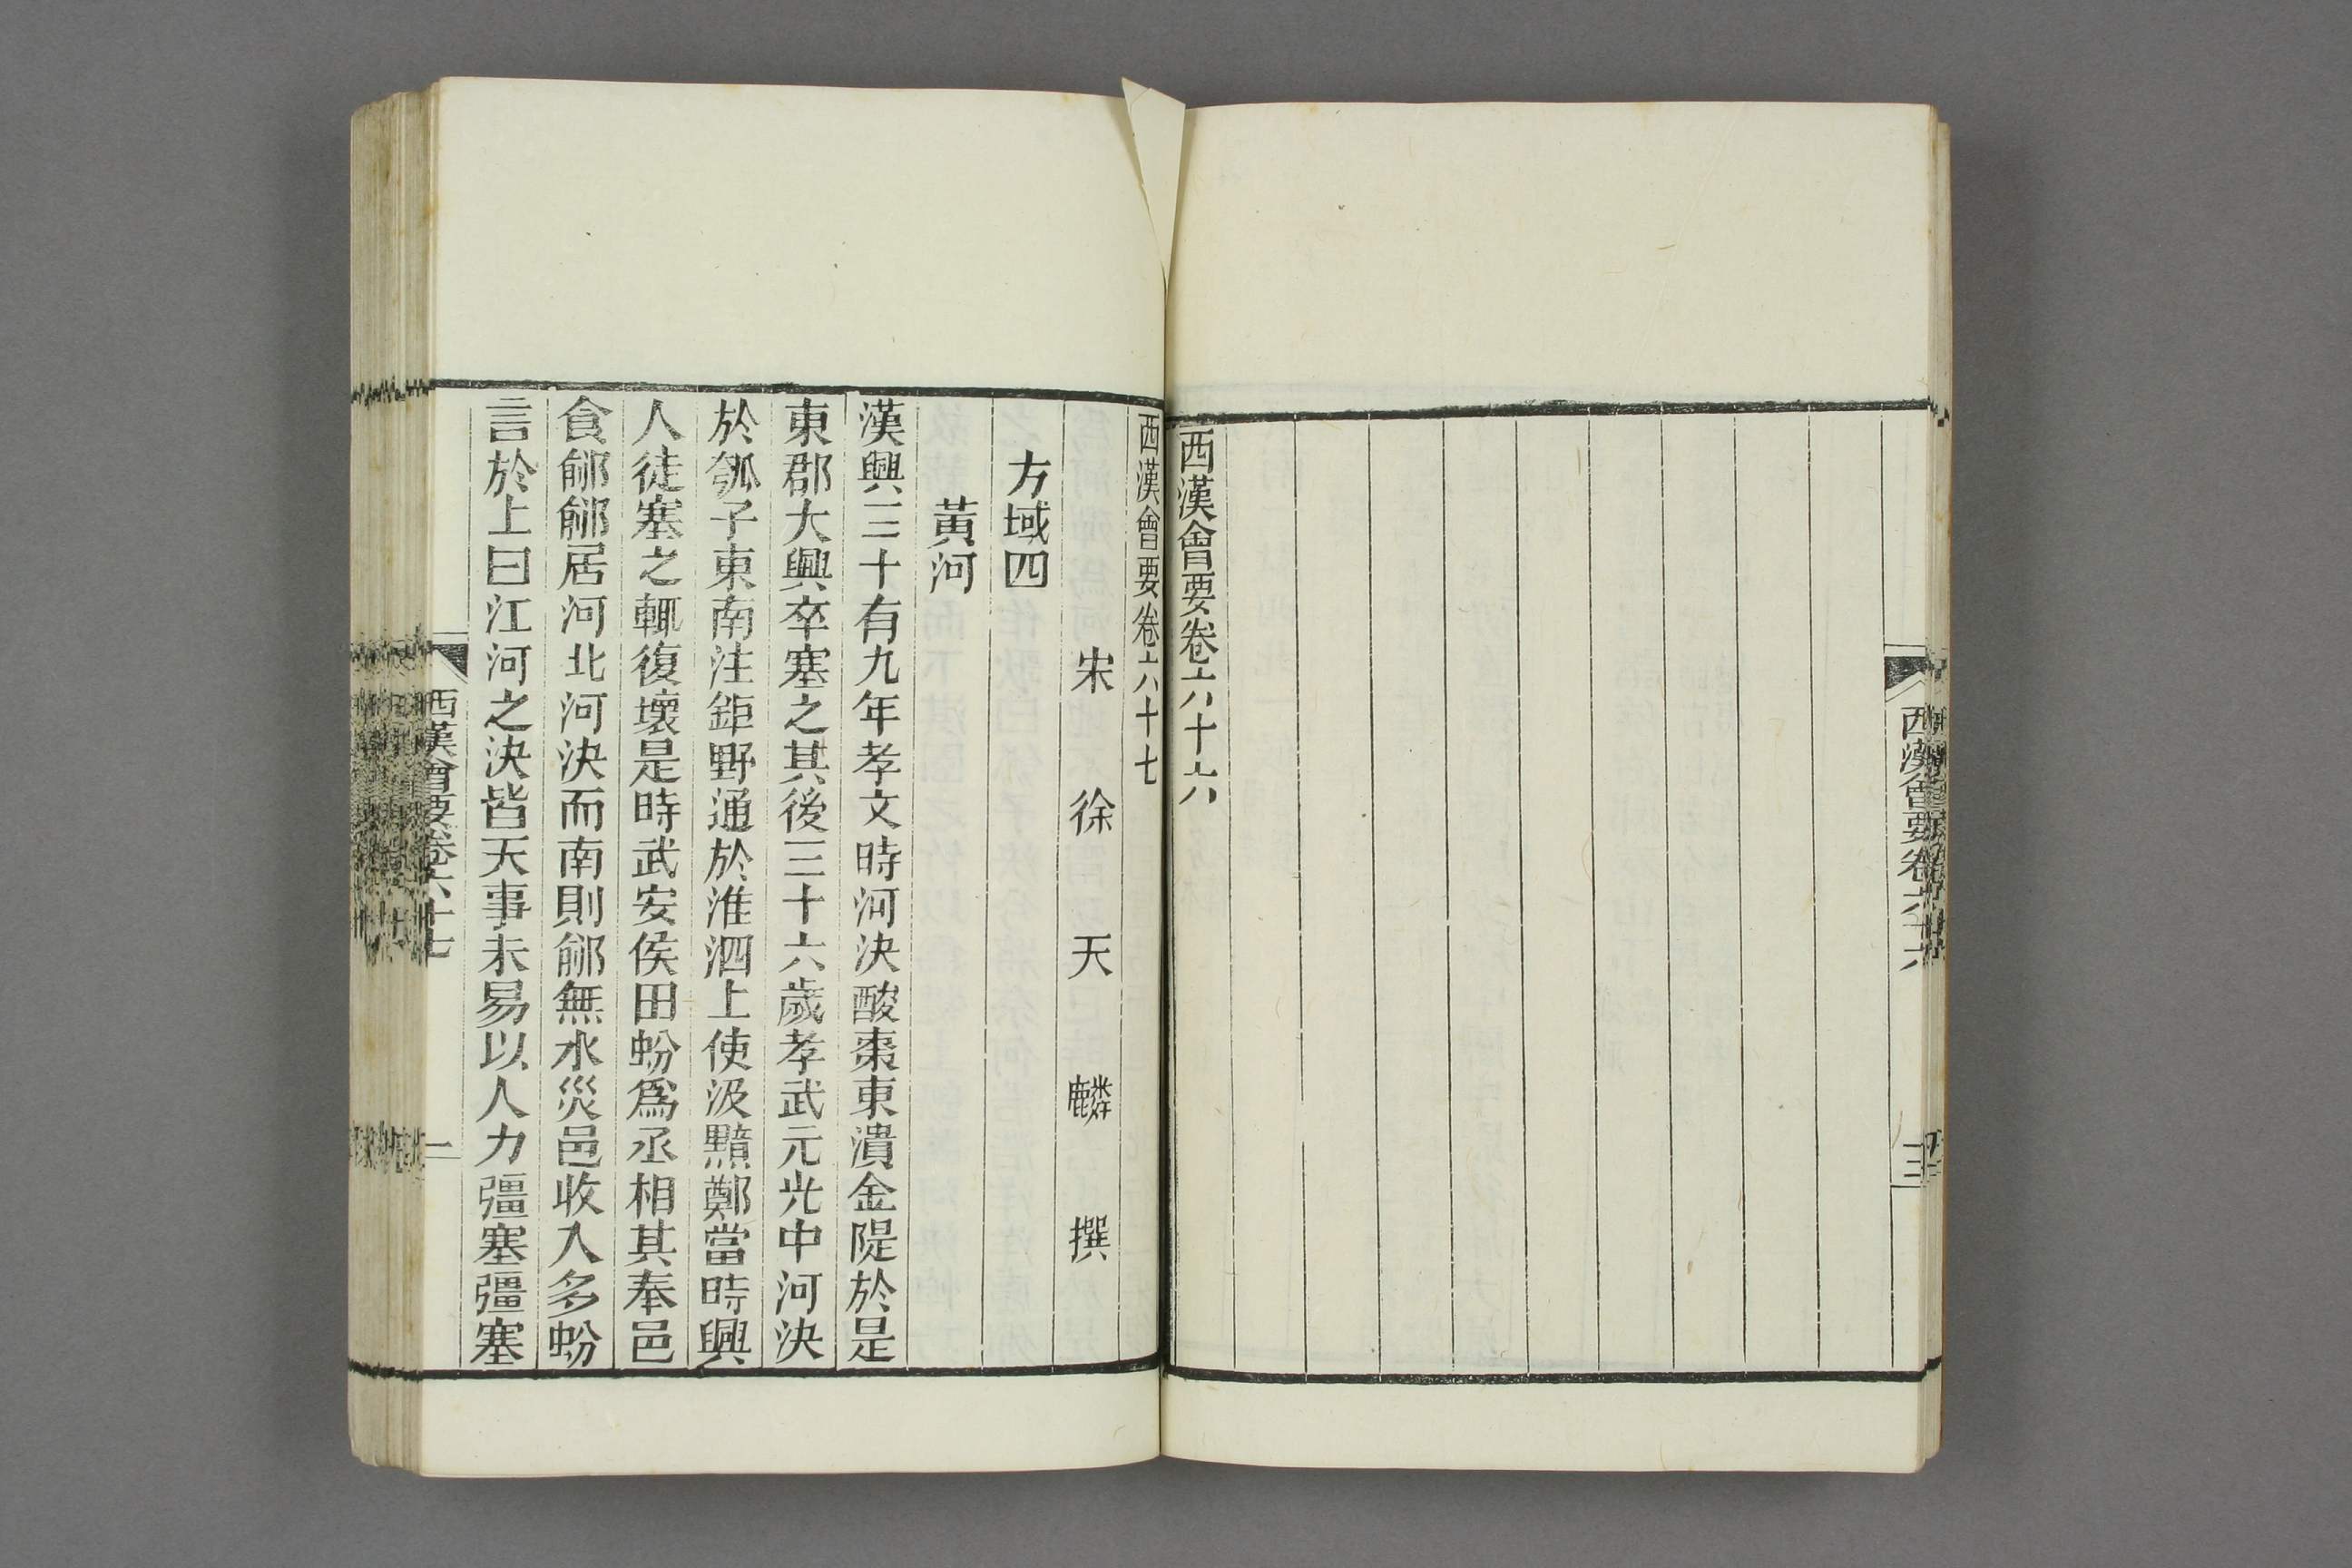 西漢會要卷六十六
西漢會要卷六十六
西漢會要卷六十七
宋 徐 天 麟 撰
方域四
黃河
漢興三十有九年孝文時河決酸棗東潰金隄於是
東郡大興卒塞之其後三十六歲孝武元光中河決
於瓠子東南注鉅野通於淮泗上使汲黯鄭當時興
人徒塞之輒復壞是時武安侯田蚡爲丞相其奉邑
食鄃鄃居河北河決而南則鄃無水災邑收入多蚡
言於上曰江河之決皆天事未易以人力彊塞彊塞
西漢會要卷六十七
一